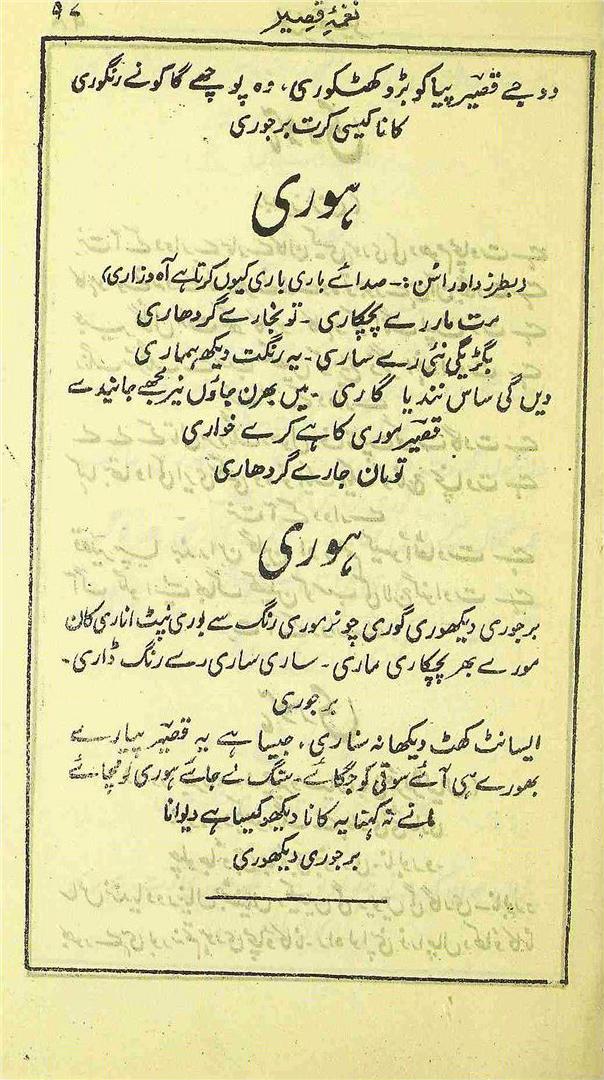 نغمۂ قصیر
۹۷
دوجے قصیر پیا کو بڑو کھٹکوری، وہ پوچھے گا کونے رنگوری
کانا کیسی کرت برجوری
ہوری
(بطرز داورا سُن :- صدائے باری باری کیوں کرتا ہے آہ و زاری)
مرت مار رے پچکاری ۔ تو نجارے گردھاری
بگڑیگی نئی رے ساری ۔ یہ رنگت دیکھ ہماری
دیں گی ساس نندیا گاری ۔ میں بھرن جاؤں نیر مجھے جانیدے
قصیر موری کاہے کرے خواری
تو مان جارے گردھاری
ہوری
برجوری دیکھوری گوری چونر موری رنگ سے بوری نپٹ اناری کان
مورے بھر پچکاری ماری ۔ ساری ساری رے رنگ ڈاری ۔
برجوری
ایسا نٹ کھٹ دیکھا نہ سناری، جیسا ہے یہ قصیر پیارے
بھورے ہی آئے سوتی کو جگائے ۔ سنگ لے جائے ہوری لو مچائے
مانے نہ کہنا یہ کانا دیکھو کیسا ہے دیوانا
برجوری دیکھوری